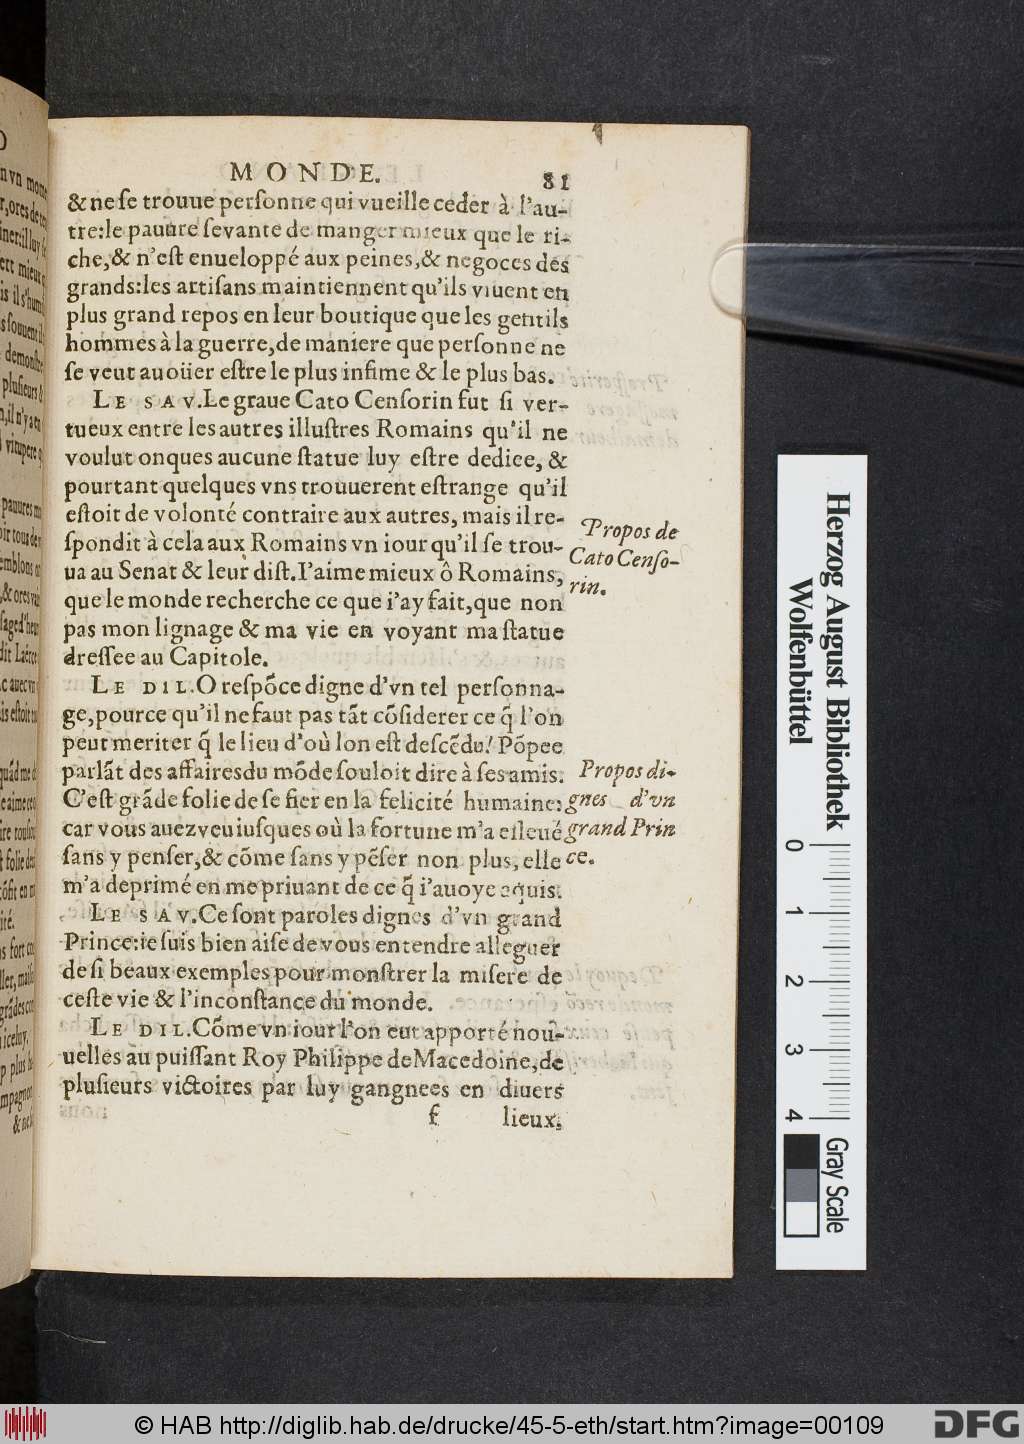 MONDE. 81
& ne ſe trouue perſonne qui vueille ceder à l'au-
tre:le pauure ſe vante de manger mieux que le ri-
che,& n'eſt enueloppé aux peines,& negoces des
grands:les artiſans maintiennent qu'ils viuent en
plus grand repos en leur boutique que les gentils
hommes à la guerre,de maniere que perſonne ne
ſe veut auoüer eſtre le plus infime & le plus bas.
LE SAV.Le graue Cato Cenſorin fut ſi ver-
tueux entre les autres illuſtres Romains qu'il ne
voulut onques aucune ſtatue luy eſtre dediee, &
pourtant quelques vns trouuerent eſtrange qu'il
eſtoit de volonté contraire aux autres, mais il re-
ſpondit à cela aux Romains vn iour qu'il ſe trou-
ua au Senat & leur diſt.I'aime mieux ô Romains,
que le monde recherche ce que i'ay fait,que non
pas mon lignage & ma vie en voyant ma ſtatue
dreſſee au Capitole.
Propos de
Cato Cenſo-
rin.
LE DIL.O reſpõce digne d'vn tel perſonna-
ge,pource qu'il ne faut pas tãt cõſiderer ce q̃ l'on
peut meriter q̃ le lieu d'où lon eſt deſcẽdu! Põpee
parlãt des affaires du mõde ſouloit dire à ſes amis.
C'eſt grãde folie de ſe fier en la felicité humaine:
car vous auez veu iuſques où la fortune m'a eſleué
ſans y penſer,& cõme ſans y pẽſer non plus, elle
m'a deprimé en me priuant de ce q̃ i'auoye aquis.
Propos di-
gnes d'vn
grand Prin
ce.
LE SAV.Ce ſont paroles dignes d'vn grand
Prince:ie ſuis bien aiſe de vous entendre alleguer
de ſi beaux exemples pour monſtrer la miſere de
ceſte vie & l'inconſtance du monde.
LE DIL.Cõme vn iour l'on eut apporté nou-
uelles au puiſſant Roy Philippe de Macedoine,de
pluſieurs victoires par luy gangnees en diuers
f lieux.
Herzog August Bibliothek
Wolfenbüttel
0 1 2 3 4
Gray Scale
© HAB http://diglib.hab.de/drucke/45-5-eth/start.htm?image=00109
DFG